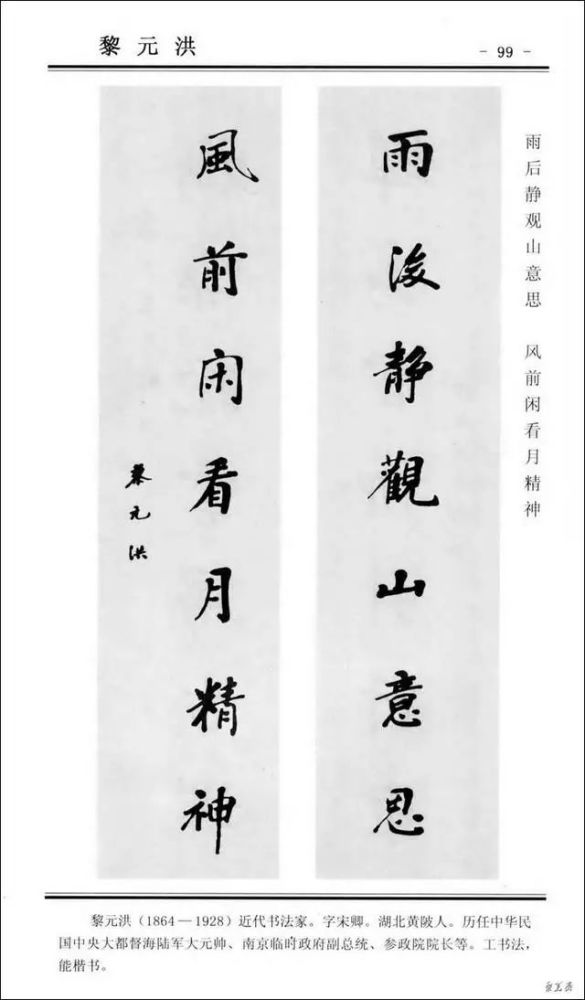 黎元洪
- 99 -
雨后静观山意思　风前闲看月精神
雨後靜觀山意思
風前闲看月精神
黎元洪
黎元洪（1864—1928）近代书法家。字宋卿。湖北黄陂人。历任中华民
国中央大都督海陆军大元帅、南京临时政府副总统、参政院院长等。工书法，
能楷书。